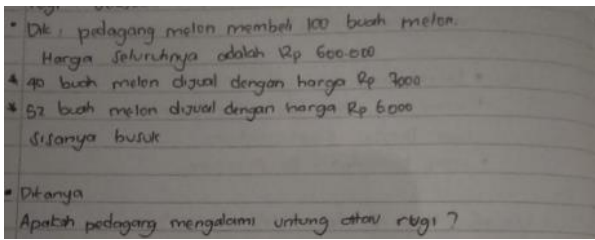 • Dik, pedagang melon membeli 100 buah melon.
Harga seluruhnya adalah Rp 600.000
* 40 buah melon dijual dengan harga Rp 7000
* 52 buah melon dijual dengan harga Rp 6000
Sisanya busuk
• Ditanya
Apakah pedagang mengalami untung atau rugi ?